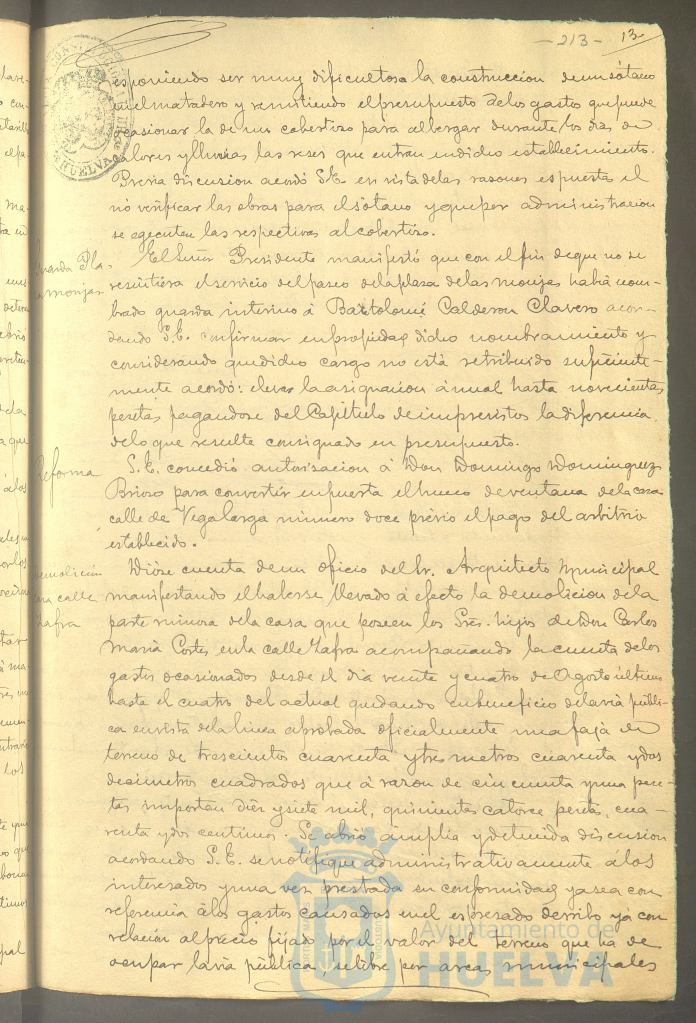 - 213 - 13
esponiendo ser muy dificultosa la construccion de un sótano
en el matadero y remitiendo el presupuesto de los gastos que puede
ocasionar la de un cobertizo para albergar durante los dias de
calores y lluvias las reses que entran en dicho establecimiento.
Previa discusion acordó S.E. en vista de las razones espuestas el
no verificar las obras para el sótano y que por administracion
se egecuten las respectivas al cobertizo.
Guarda Pla-
za monjas
El Señor Presidente manifestó que con el fin de que no se
resintiera el servicio del paseo de la plaza de las monjas habia nom-
brado guarda interino á Bartolomé Calderon Clavero acor-
dando S.E. confirmar en propiedad dicho nombramiento y
considerando que dicho cargo no está retribuido suficiente-
mente acordó: elevar la asignacion anual hasta novecientas
pesetas pagandose del Capitulo de imprevistos la diferencia
de lo que resulte consignado en presupuesto.
Reforma
S.E. concedió autorisacion á Don Domingo Dominguez
Brioso para convertir en puerta el hueco de ventana de la casa
calle de Vega larga número doce prévio el pago del arbitrio
establecido.
Demolicion
casa calle
Zafra
Dióse cuenta de un oficio del Sr. Arquitecto Municipal
manifestando el haberse llevado á efecto la demolicion de la
parte ruinosa de la casa que poseen los Sres. hijos de Don Carlos
Maria Cortes, en la calle Zafra acompañando la cuenta de los
gastos ocasionados desde el dia veinte y cuatro de Agosto último
hasta el cuatro del actual quedando en beneficio de la via públi-
ca en vista de la linea aprobada oficialmente una faja de
terreno de trescientos cuarenta y tres metros cuarenta y dos
decimetros cuadrados que á razon de cincuenta y una pese-
tas importan diez y siete mil, quinientas catorce pesetas, cua-
renta y dos centimos. Se abrió ámplia y detenida discusion
acordando S.E. se notifique administrativamente á los
interesados y una vez prestada su conformidad ya sea con
referencia á los gastos causados en el espresado derribo ya con
relacion al precio fijado por el valor del terreno que ha de
ocupar la via pública, se libre por arcas municipales
Ayuntamiento de
HUELVA